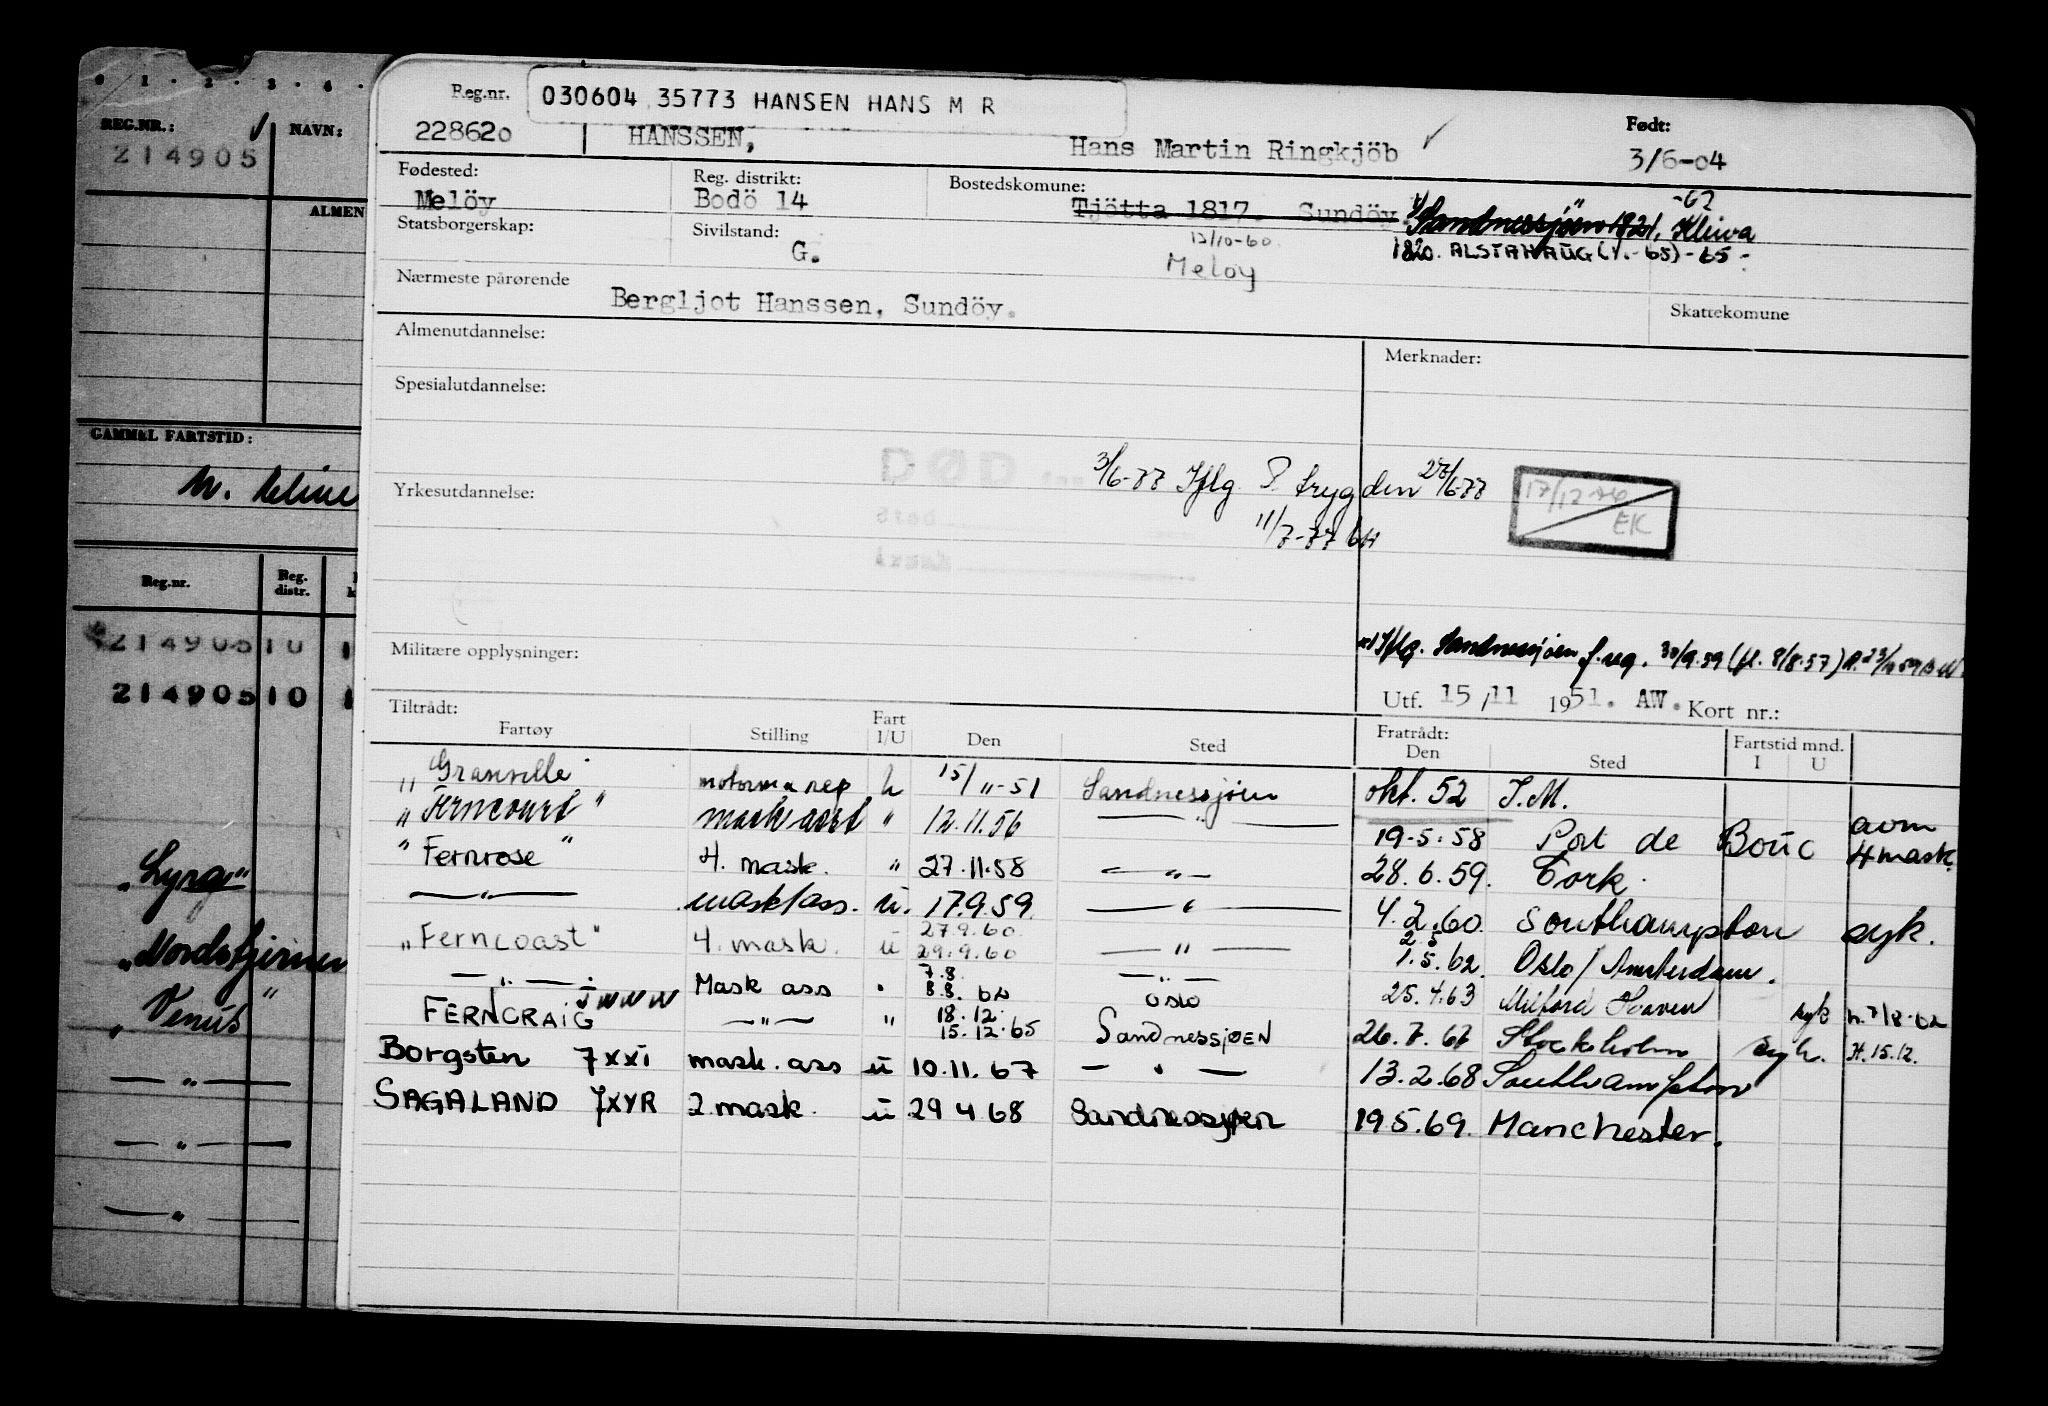 0 1 . 2 . 3 . 4 .
REG.NR.: NAVN:
214905
ALMEN
GAMMEL FARTSTID:
Reg.nr. Reg. distr.
21490510 1
21490510 1
"Lyra"
"Nordstjernen
"Venus"
— " —
— " —
— " —
Reg.nr. 030604 35773 HANSEN HANS M R
Født:
228620 HANSSEN, Hans Martin Ringkjöb 3/6-04
Fødested: Reg. distrikt: Bostedskomune: -62
Melöy Bodö 14 Tjötta 1817. Sundöy Sandnessjöen 1821.
Statsborgerskap: Sivilstand: 13/10-60 1820. ALSTAHAUG (1.-65)-65-
G. Meloy
Nærmeste pårørende
Bergljot Hanssen, Sundöy. Skattekomune
Almenutdannelse: Merknader:
Spesialutdannelse:
DØD 3/6-77 Iflg P. trygden 27/6-77 17/12
Yrkesutdannelse: Sted 11/7-77 EK
Militære opplysninger: Iflg. Sandnessjøen f.reg. 30/9.59 (fl. 8/8.57)
Utf. 15/11 1951. AW. Kort nr.:
Tiltrådt: Fratrådt: Fartstid mnd.
Fartøy Stilling Fart I/U Den Sted Den Sted I U
"Granville" 15/11-51 Sandnessjøen okt. 52 I.M.
"Ferncourt" mask asst " 12.11.56 — " — 19-5-58 Port de Bouc avm 4 mask.
"Fernrose" 4. mask. " 27.11.58 — " — 28.6.59. Cork.
— " — mask/ass. u. 17.9.59. — " — 4.2.60. Southampton syk.
"Ferncoast" 4. mask. u 27.9.60. 29.9.60 — " — 2.5 1.5.62. Oslo/Amsterdam.
— " — Mask ass " 7.8. 8.8. 62 Oslo 25.4.63 Milford Haven syk h. 7/8-62
FERNCRAIG JWWW — " — " 18.12. 15.12.65 Sandnessjøen 26.7.67 Stockholm syk. H. 15.12.
Borgsten 7XXI mask. ass u 10.11.67 — " — 13.2.68 Southampton
SAGALAND JXYR 2. mask. u 29 4 68 Sandnessjøen 19.5.69. Manchester.